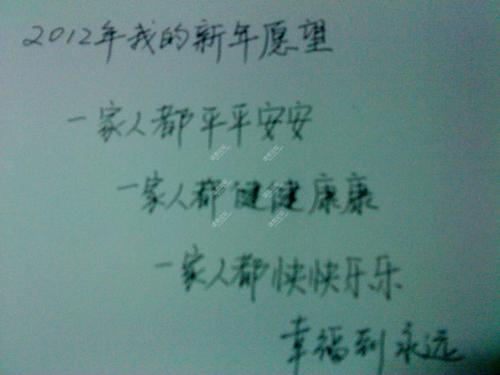 2012年我的新年愿望
一家人都平平安安
一家人都健健康康
一家人都快快乐乐
幸福到永远